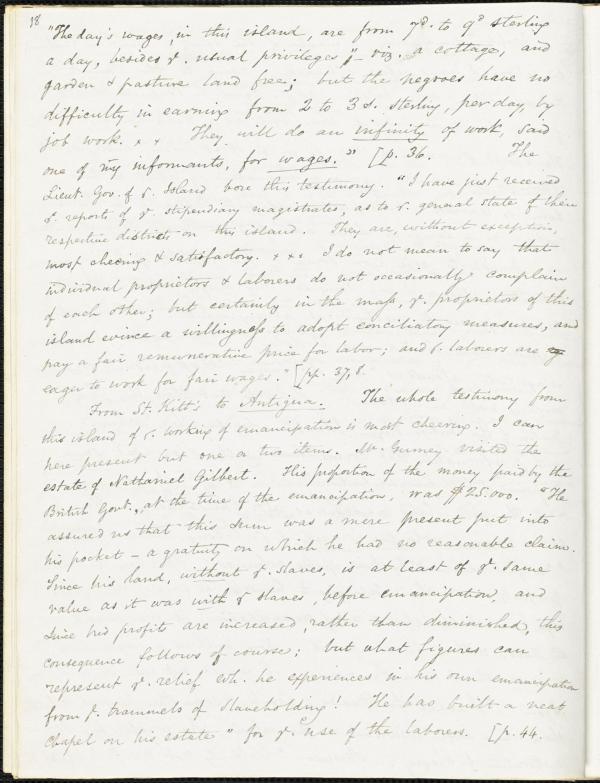 18
"The day's wages, in this island, are from 7d. to 9d sterling
a day, besides ye. usual privileges"— viz. a cottage, and
garden & pasture land free; but the negroes have no
difficulty in earning from 2 to 3 s. sterling, per day, by
job work. x x They will do an infinity of work, said
one of my informants, for wages." [p. 36. The
Lieut. Gov. of ye. Island bore this testimony. "I have just received
ye. reports of ye. stipendiary magistrates, as to ye. general state of their
respective districts on this island. They are, without exception,
most cheering & satisfactory. x x x I do not mean to say that
individual proprietors & laborers do not occasionally complain
of each other; but certainly in the mass, ye. proprietors of this
island evince a willingness to adopt conciliatory measures, and
pay a fair remunerative price for labor; and ye. laborers are
eager to work for fair wages." [pp. 37, 8.
From St. Kitt's to Antigua. The whole testimony from
this island of ye. working of emancipation is most cheering. I can
here present but one or two items. Mr. Gurney visited the
estate of Nathaniel Gilbert. His proportion of the money paid by the
British Govt., at the time of the emancipation, was $25.000. "He
assured us that this sum was a mere present put into
his pocket — a gratuity on which he had no reasonable claim.
Since his land, without ye. slaves, is at least of ye. same
value as it was with ye slaves, before emancipation, and
since his profits are increased, rather than diminished, this
consequence follows of course; but what figures can
represent ye. relief wh. he experiences in his own emancipation
from ye. trammels of slaveholding! He has built a neat
chapel on his estate" for ye. use of the laborers. [p. 44.